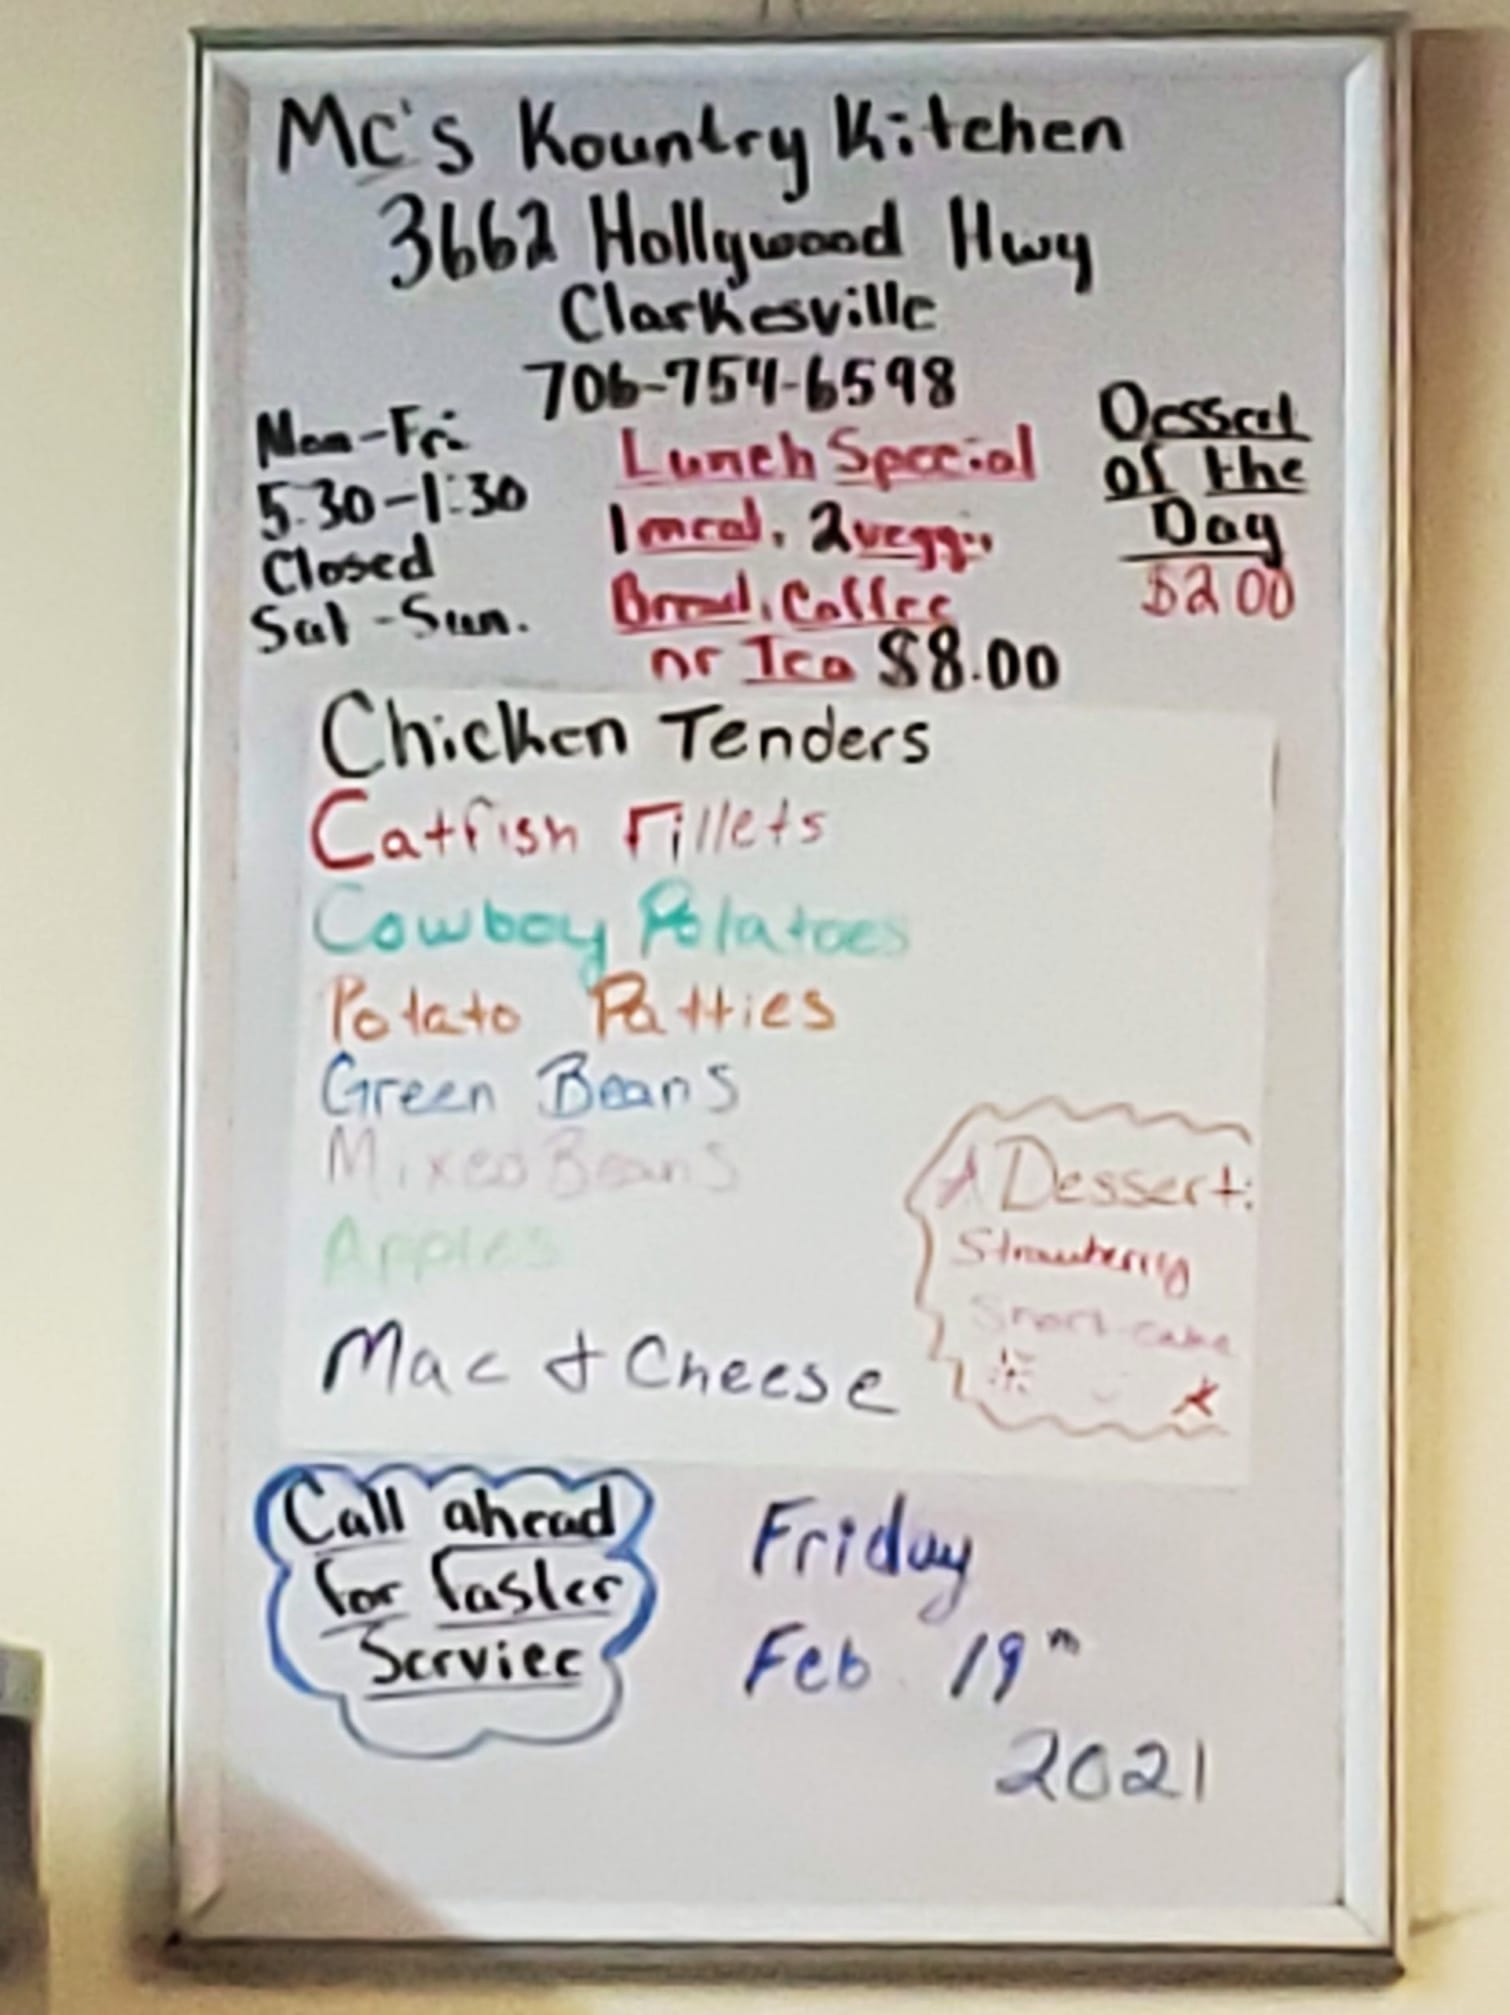 Mc's Kountry Kitchen
3662 Hollywood Hwy
Clarkesville
706-754-6598
Mon-Fri
5:30-1:30
Closed
Sat-Sun.
Lunch Special
1 meat, 2 veggi,
Bread, Coffee
or Tea $8.00
Dessert
of the
Day
$2.00
Chicken Tenders
Catfish Fillets
Cowboy Potatoes
Potato Patties
Green Beans
Mixed Beans
Apples
Mac & Cheese
Dessert:
Strawberry
Short-cake
Call ahead
for faster
Service
Friday
Feb 19th
2021